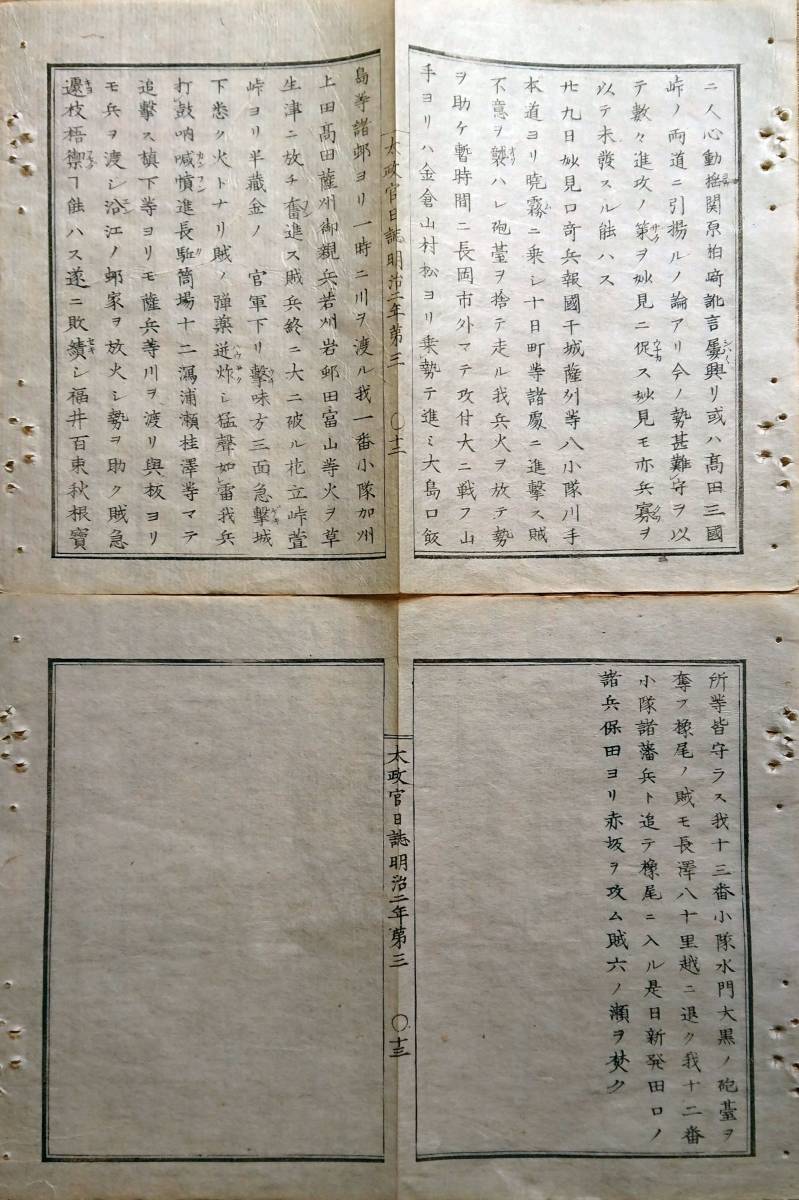 ニ人心動揺関原柏崎訛言屡興リ或ハ髙田三國
峠ノ両道ニ引揚ルノ論アリ今ノ勢甚難守ヲ以
テ數々進攻ノ策ヲ妙見ニ促ス妙見モ亦兵寡ヲ
以テ未發スル能ハス
廿九日妙見口奇兵報國干城薩列等八小隊川手
本道ヨリ曉霧ニ乗シ十日町等諸處ニ進撃ス賊
不意ヲ襲ハレ砲䑓ヲ捨テ走ル我兵火ヲ放テ勢
ヲ助ケ暫時間ニ長岡市外マテ攻付大ニ戦フ山
手ヨリハ金倉山村松ヨリ乗勢テ進ミ大島口飯
太政官日誌明治二年第三 〇十二
島等諸邨ヨリ一時ニ川ヲ渡ル我一番小隊加州
上田髙田薩州御親兵若州岩邨田富山等火ヲ草
生津ニ放チ奮進ス賊兵終ニ大ニ破ル杝立峠萱
峠ヨリ半藏金ノ 官軍下リ撃味方三面急撃城
下悉ク火トナリ賊ノ弾藥迸炸シ猛聲如雷我兵
打鼓吶喊憤進長駈筒場十二潟浦瀬桂澤等マテ
追撃ス槙下等ヨリモ薩兵等川ヲ渡リ與板ヨリ
モ兵ヲ渡シ沿江ノ邨家ヲ放火シ勢ヲ助ク賊急
遽枝梧禦ヿ能ハス遂ニ敗績シ福井百束秋根寶
所等皆守ラス我十三番小隊水門大黒ノ砲䑓ヲ
奪フ橡尾ノ賊モ長澤八十里越ニ退ク我十二番
小隊諸藩兵ト追テ橡尾ニ入ル是日新発田口ノ
諸兵保田ヨリ赤坂ヲ攻ム賊六ノ瀬ヲ焚ク
太政官日誌明治二年第三 〇十三